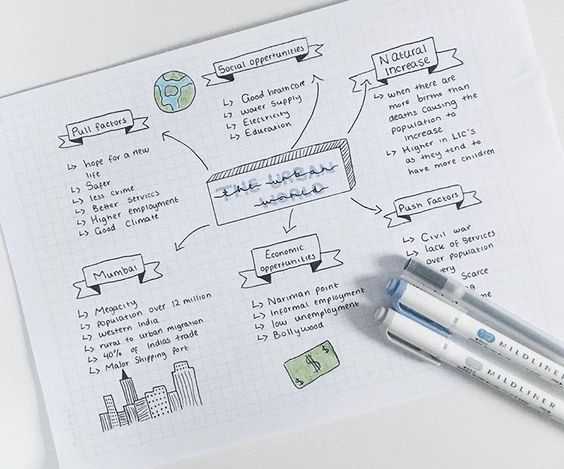 Social opportunities
↳ Good healthcare
↳ water supply
↳ Electricity
↳ Education
Natural
Increase
↳ when there are
more births than
deaths causing the
population to
increase
↳ Higher in LIC's
as they tend to
have more children
Pull factors
↳ hope for a new
life
↳ Safer
↳ less crime
↳ Better services
↳ Higher employment
↳ Good Climate
THE URBAN
WORLD
the urban
world
Push Factors
↳ Civil war
↳ lack of services
over population
scarce
Mumbai
↳ Megacity
↳ population over 12 million
↳ western India
↳ rural to urban migration
↳ 40% of Indias trade
↳ Major Shipping port
Economic
opportunities
↳ Nariman point
↳ Informal employment
↳ low unemployment
↳ Bollywood
$ $ $
MILDLINER
MILDLINER